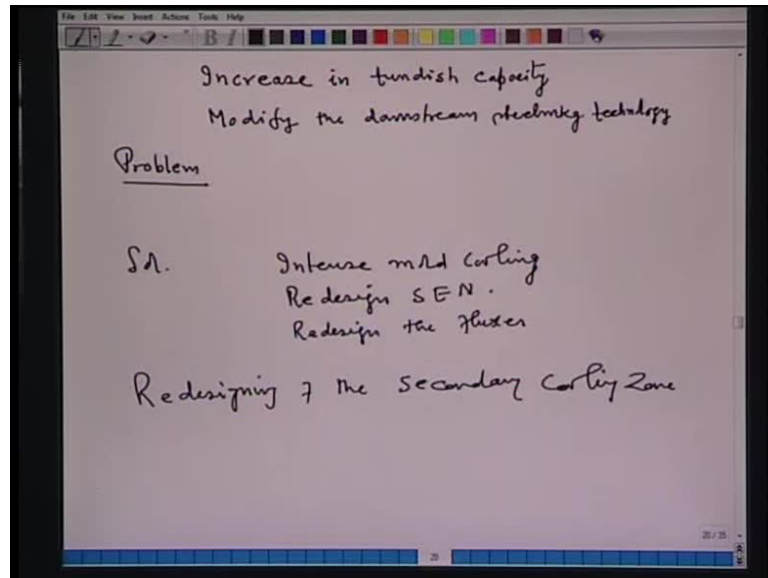 File Edit View Insert Actions Tools Help
Increase in tundish capacity
Modify the downstream steelmkg technology
Problem
Sol. Intense mold cooling
Redesign SEN.
Redesign the fluxes
Redesigning of the secondary cooling zone
20 / 35
20